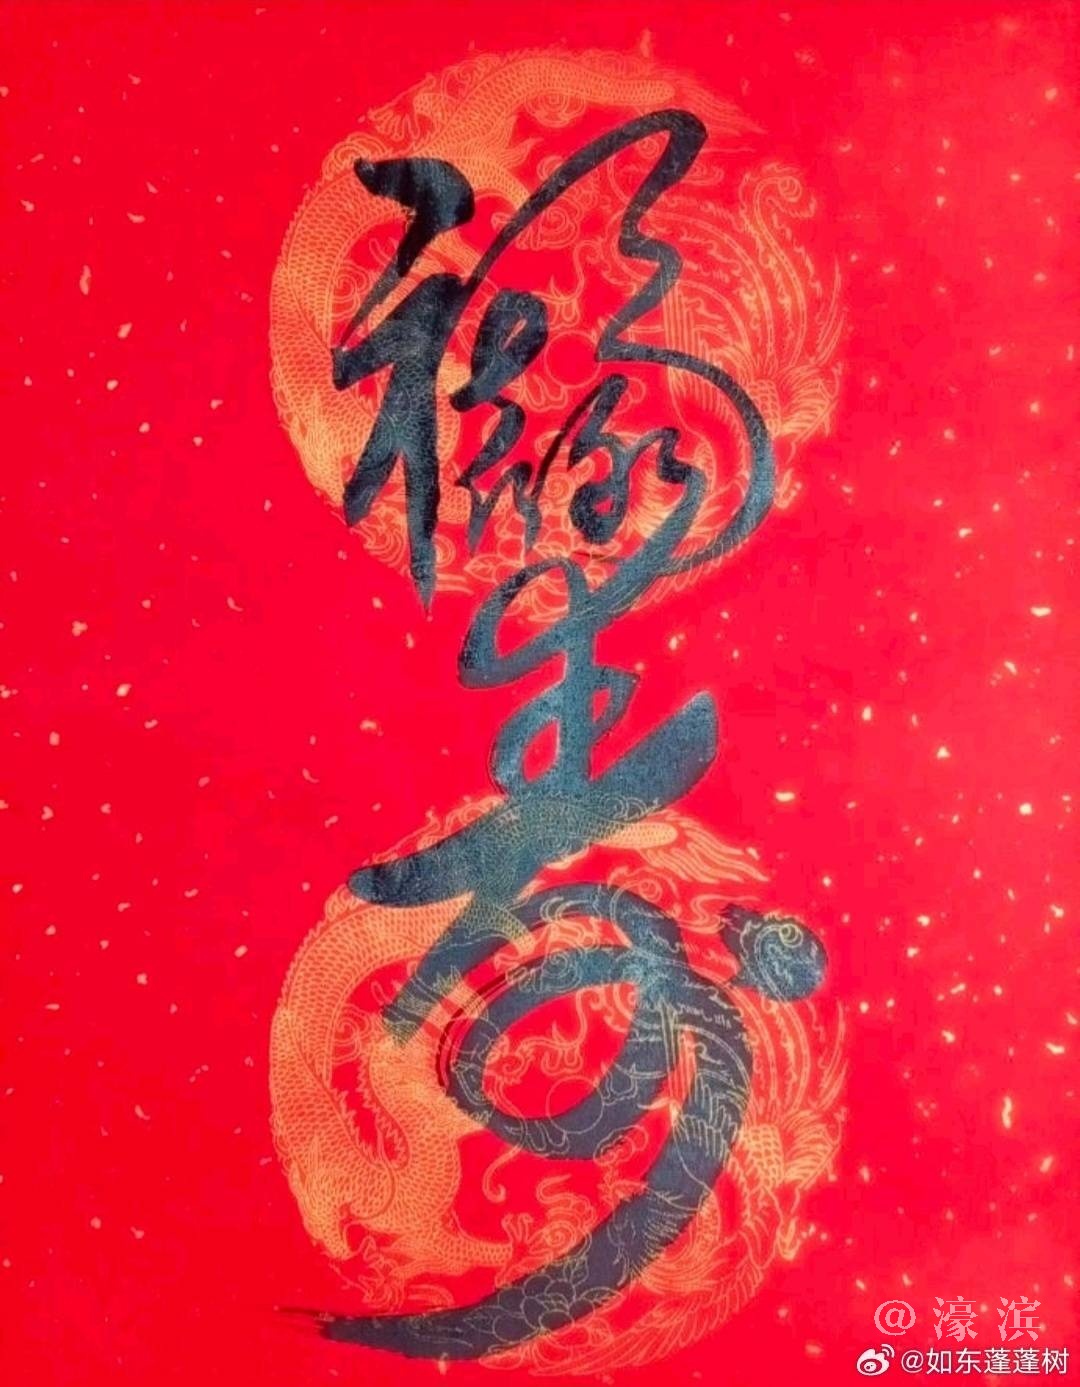 福禄寿
@濠滨
@如东蓬蓬树